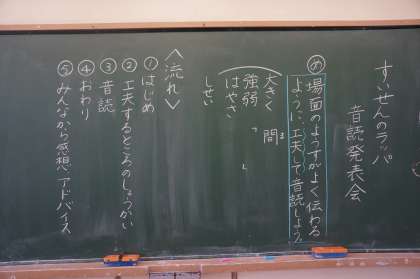 すいせんのラッパ
音読発表会
め 場面のようすがよく伝わる
ように、工夫して音読しよう
大きく 間
強弱
はやさ 「 」
しせい
＜流れ＞
①はじめ
②工夫するところのしょうかい
③音読
④おわり
⑤みんなから感想 アドバイス